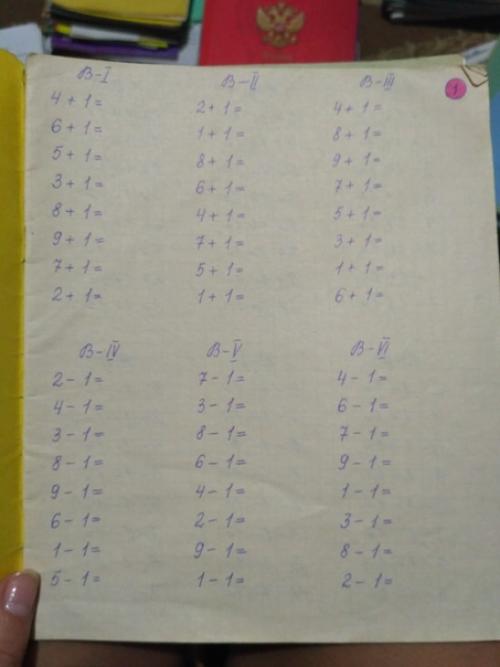 В-I В-II В-III 1
4 + 1 = 2 + 1 = 4 + 1 =
6 + 1 = 1 + 1 = 8 + 1 =
5 + 1 = 8 + 1 = 9 + 1 =
3 + 1 = 6 + 1 = 7 + 1 =
8 + 1 = 4 + 1 = 5 + 1 =
9 + 1 = 7 + 1 = 3 + 1 =
7 + 1 = 5 + 1 = 1 + 1 =
2 + 1 = 1 + 1 = 6 + 1 =
В-IV В-V В-VI
2 - 1 = 7 - 1 = 4 - 1 =
4 - 1 = 3 - 1 = 6 - 1 =
3 - 1 = 8 - 1 = 7 - 1 =
8 - 1 = 6 - 1 = 9 - 1 =
9 - 1 = 4 - 1 = 1 - 1 =
6 - 1 = 2 - 1 = 3 - 1 =
1 - 1 = 9 - 1 = 8 - 1 =
5 - 1 = 1 - 1 = 2 - 1 =